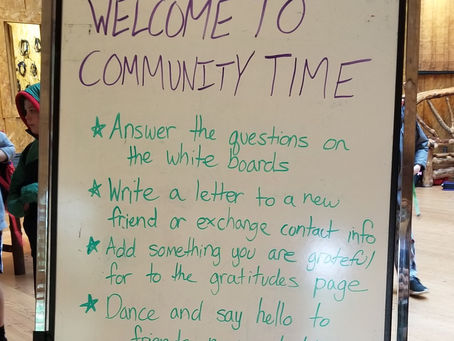 WELCOME TO
COMMUNITY TIME
★ Answer the questions on
the white boards
★ Write a letter to a new
friend or exchange contact info
★ Add something you are grateful
for to the gratitudes page
★ Dance and say hello to